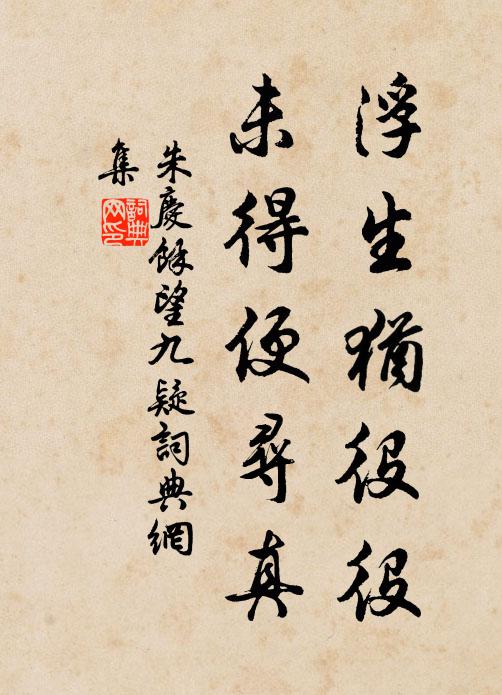 浮生猶役役
未得便尋真
朱慶餘望九疑詞典網
集
詞典網印